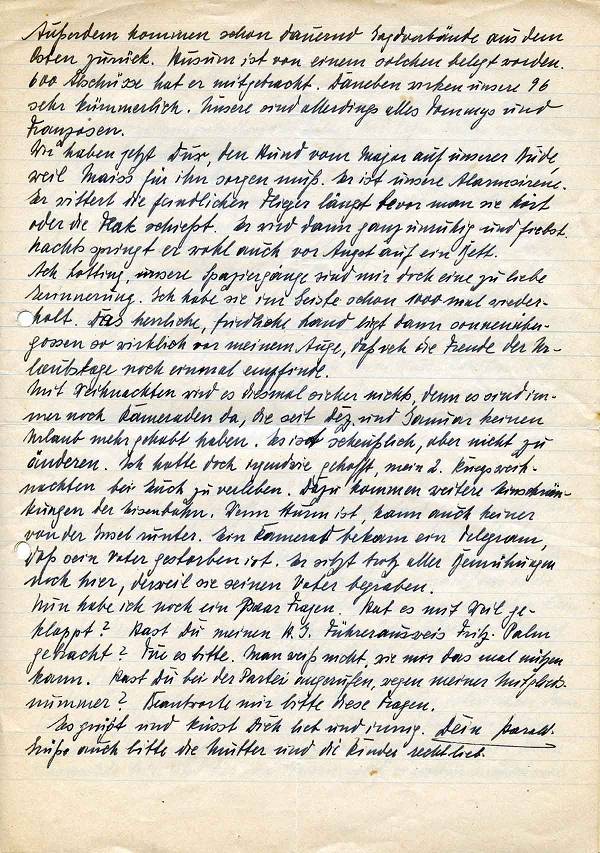 Außerdem kommen schon dauernd Jagdverbände aus dem
Osten zurück. Husum ist von einem solchen belegt worden.
600 Abschüsse hat er mitgebracht. Daneben wirken unsere 96
sehr kümmerlich. Unsere sind allerdings alles Tommys und
Franzosen.
Wir haben jetzt Dux, den Hund vom Major auf unserer Bude,
weil Maiss für ihn sorgen muß. Er ist unsere Alarmsirene.
Er wittert die feindlichen Flieger längst bevor man sie hört
oder die Flak schießt. Er wird dann ganz unruhig und
Nachts springt er wohl auch vor Angst auf ein Bett.
Ach Lotting, unsere Spaziergänge sind mir doch eine zu liebe
Erinnerung. Ich habe sie im Geiste schon 1000 mal wieder-
holt. Das herrliche, friedliche Land liegt dann sonnenüber-
gossen so wirklich vor meinem Auge, daß ich die Freude der Ur-
laubstage noch einmal empfinde.
Mit Weihnachten wird es diesmal sicher nichts, denn es sind im-
mer noch Kameraden da, die seit Dez. und Januar keinen
Urlaub mehr gehabt haben. Es ist scheußlich, aber nicht zu
änderen. Ich hatte doch irgendwie gehofft, mein 2. Kriegsweih-
nachten bei Euch zu verleben. Dazu kommen weitere Einschrän-
kungen der Eisenbahn. Wenn Sturm ist, kann auch keiner
von der Insel runter. Ein Kamerad bekam ein Telegram,
daß sein Vater gestorben ist. Er sitzt trotz aller Bemühungen
noch hier, derweil sie seinen Vater begraben.
Nun habe ich noch ein Paar Fragen. Hat es mit Weil ge-
klappt? Hast Du meinen H.J. Führerausweis Fritz Palm
gebracht? Tue es bitte. Man weiß nicht, wie mir das mal nützen
kann. Hast Du bei der Partei angerufen, wegen meiner Mitglieds-
nummer? Beantworte mir bitte diese Fragen.
Es grüßt und küsst Dich lieb und innig. Dein Harald.
Grüße auch bitte die Mutter und die Kinder recht lieb.